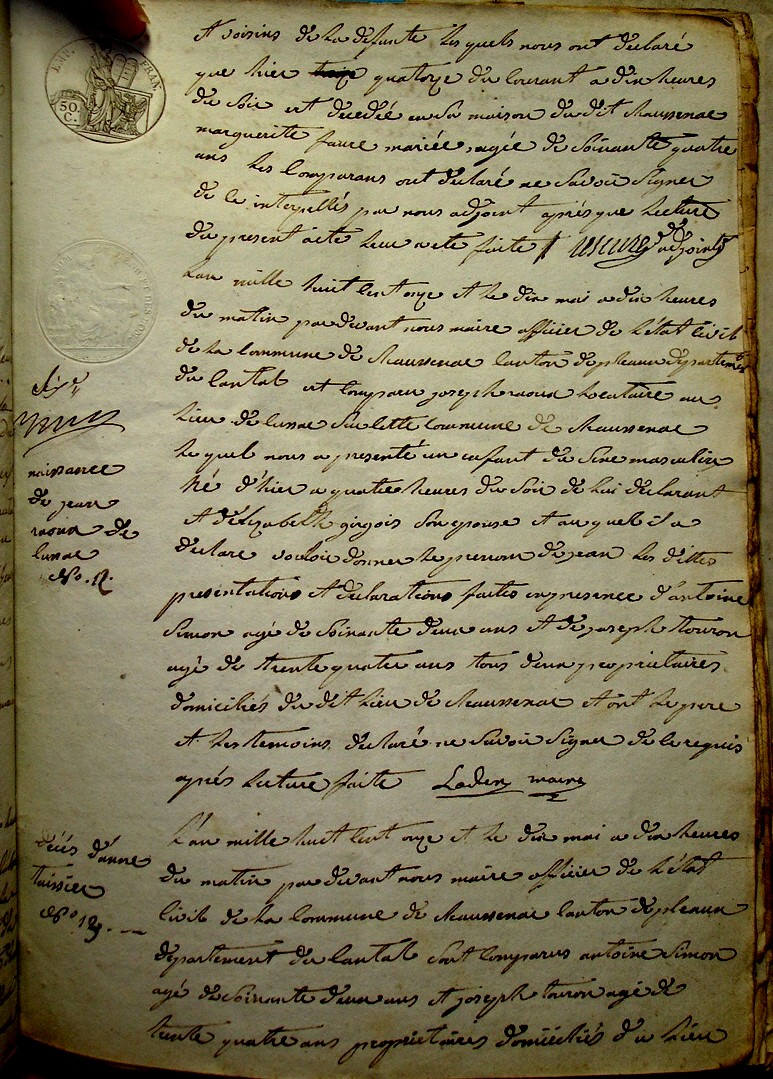 EMP. FRAN.
50 C.
et voisins de la defunte lesquels nous ont déclaré
que hier quatorze du courant a dix heures
du soir est décédée en sa maison du dit chaussenac
marguerite faure mariée, agée de soixante quatre
ans les comparans ont declaré ne savoir signer
de ce interpellés par nous adjoint après que lecture
du present acte leur a eté faite adjoint
L'an mille huit cent onze et le dix mai a dix heures
du matin par devant nous maire officier de l'état civil
de la commune de chaussenac canton de pleaux departemt
du cantal est comparu joseph raoux locataire au
lieu de lavac sur cette commune de chaussenac
le quel nous a presenté un enfant du sexe masculin
né d'hier a quatre heures du soir de lui declarant
et d'élizabeth son epouse et au quel il a
déclaré vouloir donner le prenom de jean les dittes
presentations et declarations faites en presence d'antoine
simon agé de soixante deux ans et de joseph touron
agé de trente quatre ans tous deux proprietaires
domiciliés du dit lieu de chaussenac et ont le pere
et les temoins declaré ne savoir signer de ce requis
après lecture faite Laden maire
naissance
de jean
raoux de
lavac
No. 12.
L'an mille huit cent onze et le dix mai a dix heures
du matin par devant nous maire officier de l'état
civil de la commune de chaussenac canton de pleaux
departement du cantal sont comparus antoine simon
agé de soixante deux ans et joseph touron agé de
trente quatre ans proprietaires domiciliés du lieu
décés d'anne
tuissier
No 13.